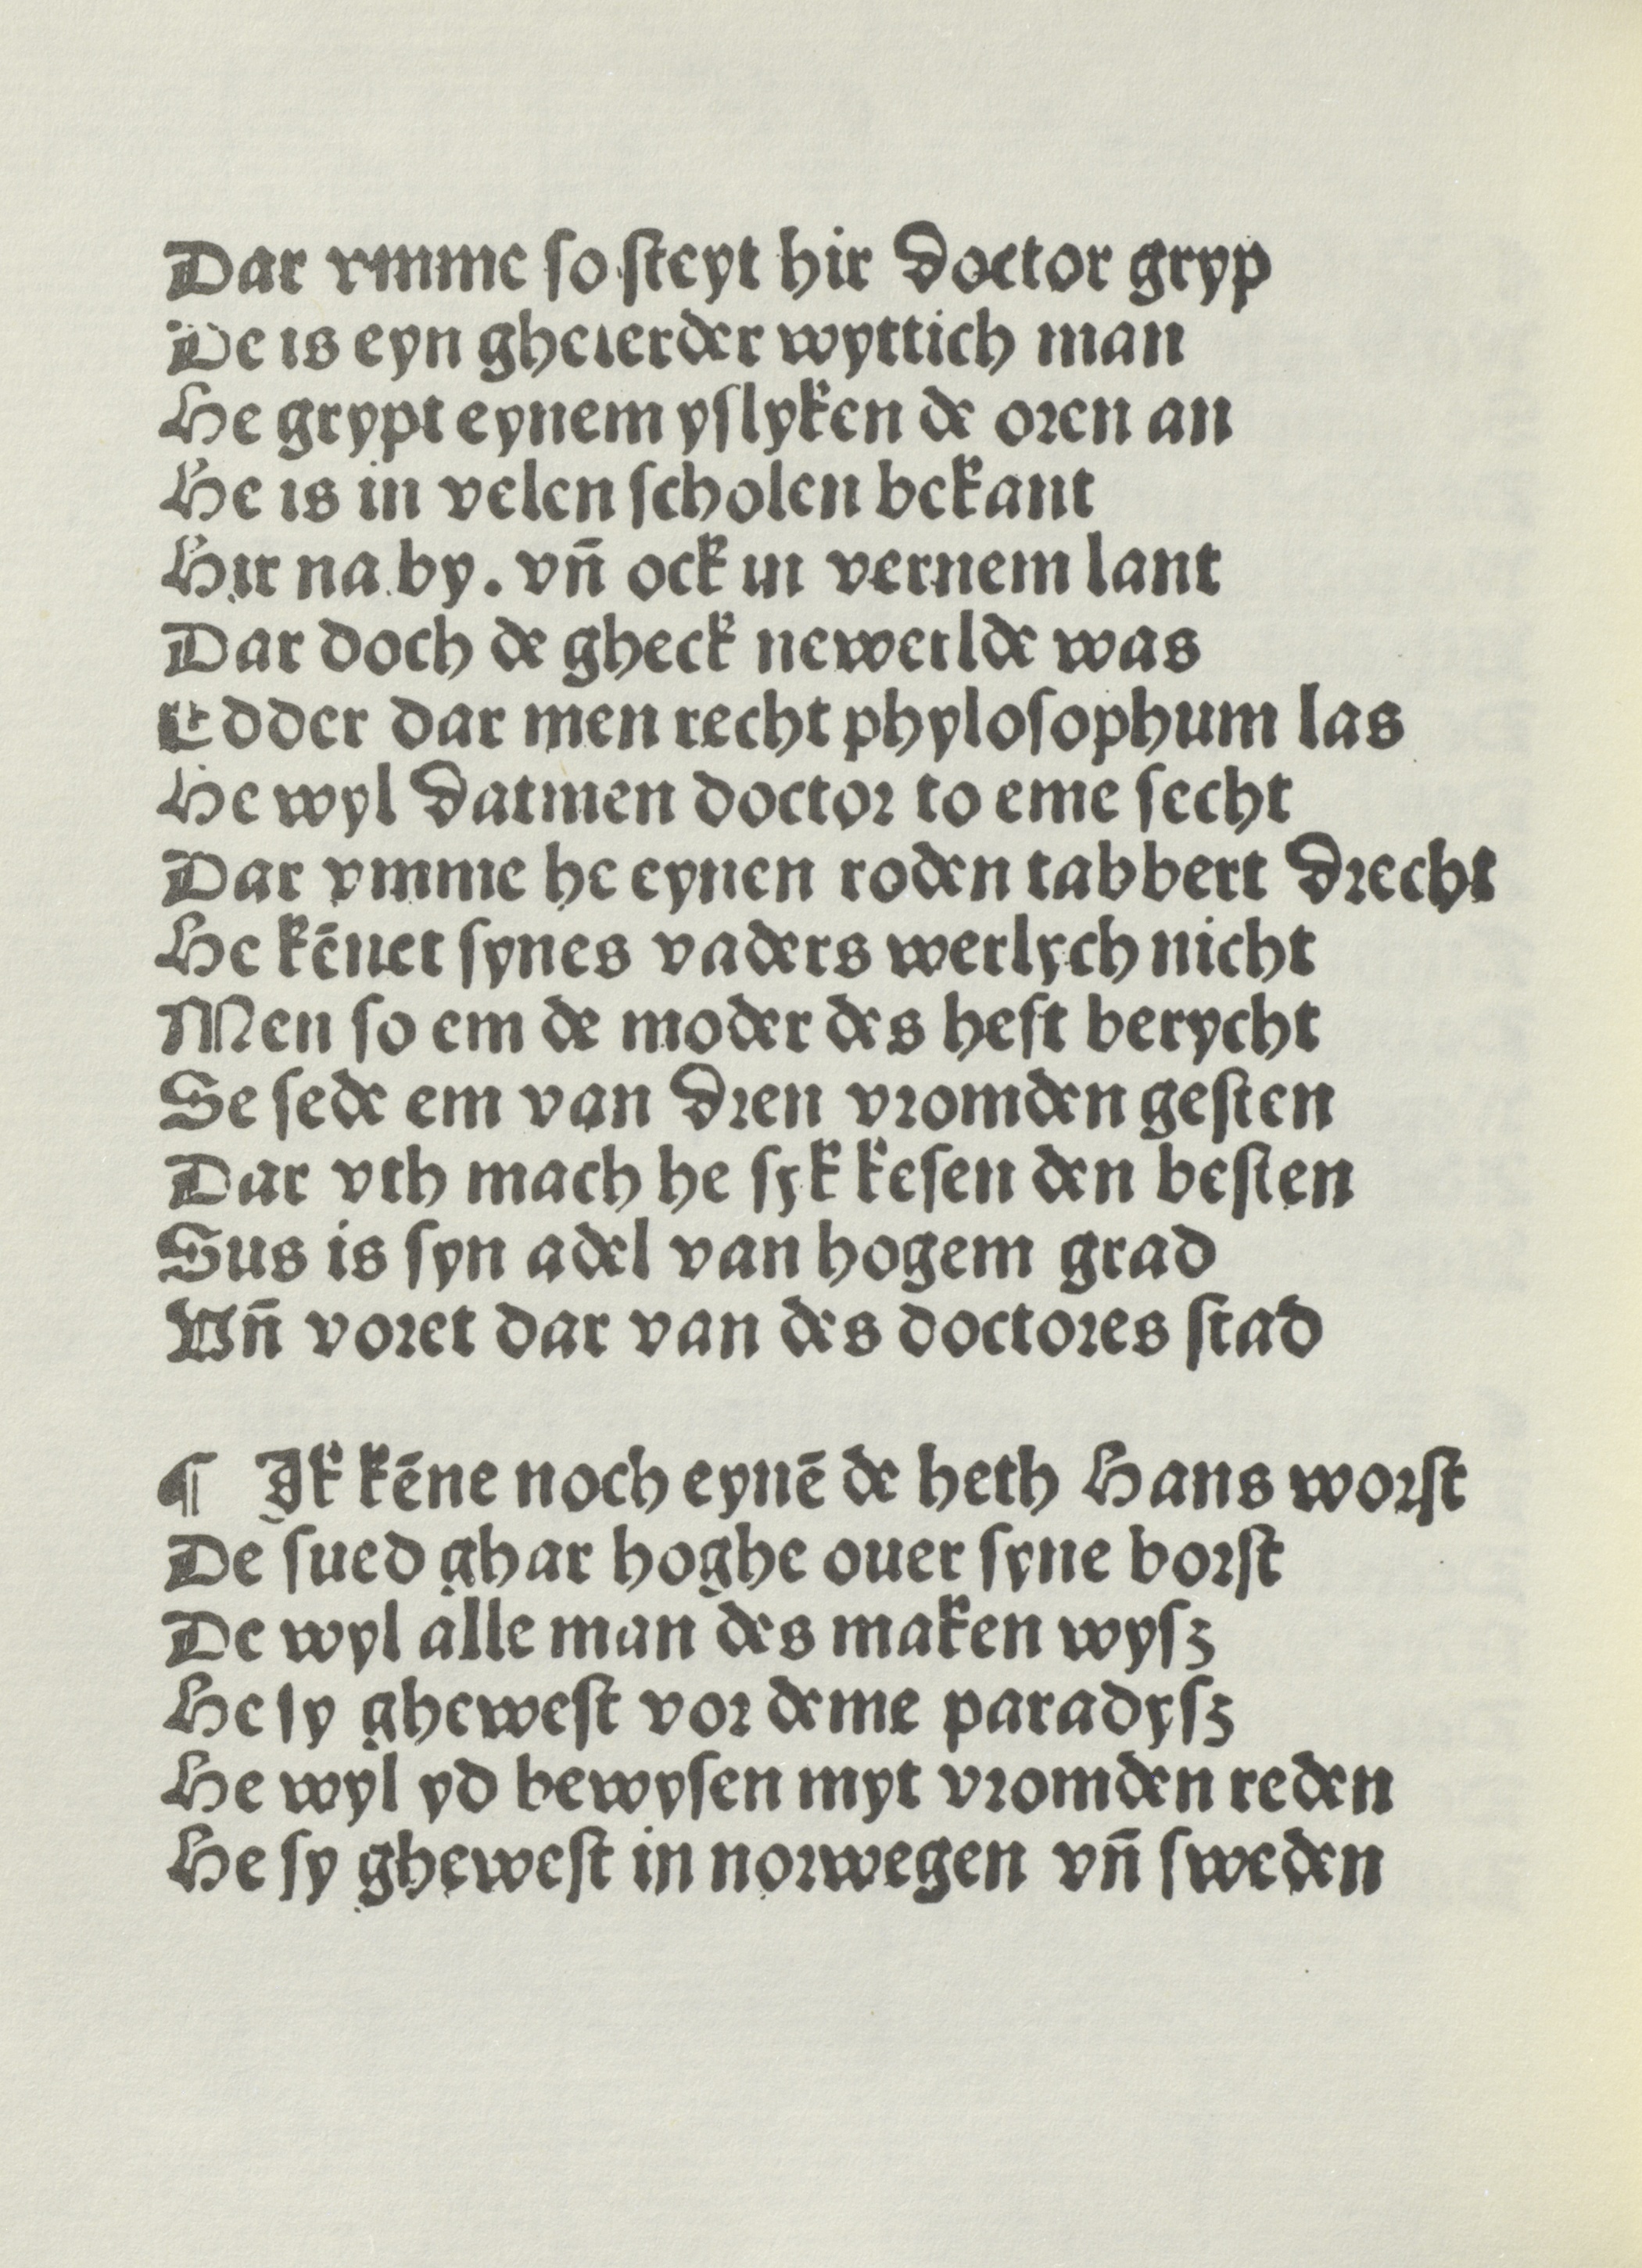 Dar vmme so steyt hir doctor gryp
De is eyn ghelerder wyttich man
He grypt eynem yslyken de oren an
He is in velen scholen bekant
Hir na by. vn̄ ock in vernem lant
Dar doch de gheck newerlde was
Edder dar men recht phylosophum las
He wyl datmen doctor to eme secht
Dar vmme he eynen roden tabbert drecht
He kēnet synes vaders werlych nicht
Men so em de moder des heft berycht
Se sede em van dren vromden gesten
Dar vth mach he syk kesen den besten
Sus is syn adel van hogem grad
Vn̄ voret dar van des doctores stad
¶ Ik kēne noch eynē de heth Hans worst
De sued ghar hoghe ouer syne borst
De wyl alle man des maken wysz
He sy ghewest vor deme paradysz
He wyl yd bewysen myt vromden reden
He sy ghewest in norwegen vn̄ sweden